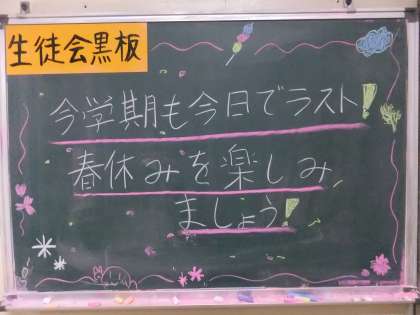 生徒会黒板
今学期も今日でラスト!
春休みを楽しみ
ましょう!